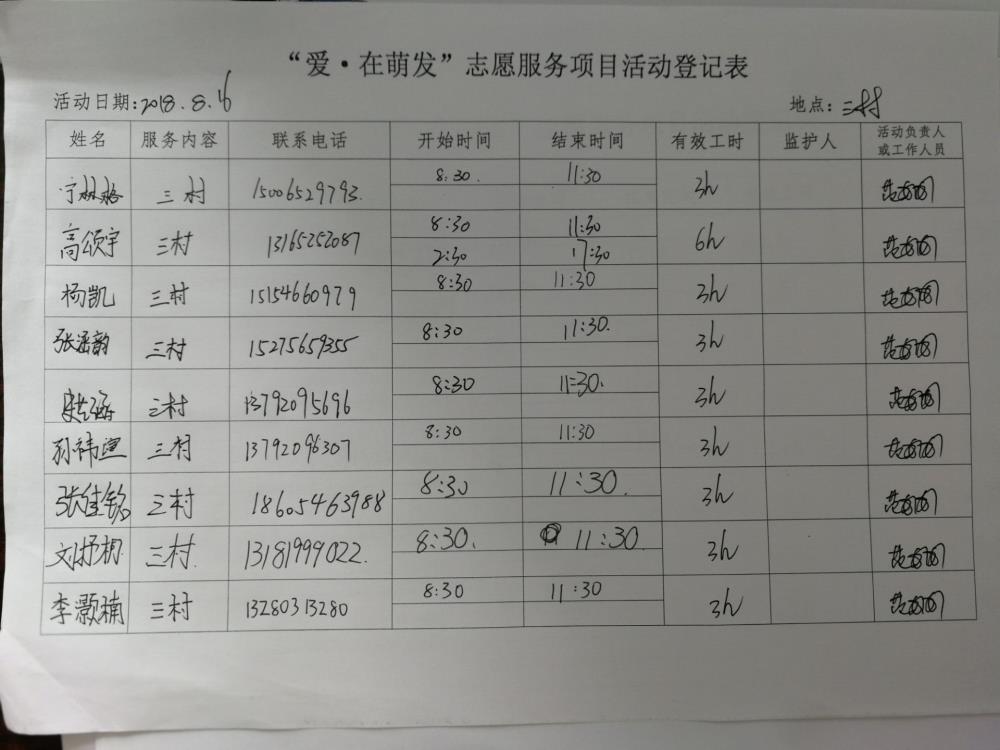 “爱·在萌发”志愿服务项目活动登记表
活动日期:2018.8.16 地点:三村
姓名 服务内容 联系电话 开始时间 结束时间 有效工时 监护人 活动负责人或工作人员
三村 15006529793. 8:30. 11:30 3h
高颂宇 三村 13165252087 8:30 11:30 6h
2:30 17:30
杨凯 三村 15154660979 8:30 11:30 3h
张涵韵 三村 15275659355 8:30 11:30. 3h
三村 13792095696 8:30 11:30. 3h
孙祎萱 三村 13792096307 8:30 11:30 3h
张佳铭 三村 18605463988 8:30 11:30. 3h
刘抒桐 三村. 13181999022. 8:30. 11:30. 3h
李灏楠 三村 13280313280 8:30 11:30 3h